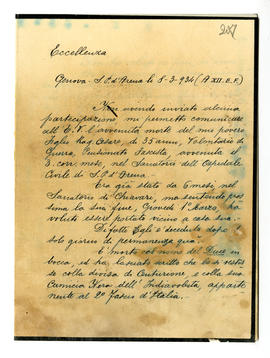 287
Eccellenza
Genova - S.P. d'Arena li 8-3-934 (A XII. E.F.)
Non avendo inviato alcuna
partecipazione, mi permetto comunicare
all' E.V. l'avvenuta morte del mio povero
figlio Rag. Cesare, di 35 anni, Volontario di
Guerra, Pensionato, Fascista, avvenuta il
3. corr. mese, nel Sanatorio dell'Ospedale
Civile di S.P. d'Arena.
Era già stato da 6 mesi nel
Sanatorio di Chiavari, ma sentendo pros-
sima la sua fine, Giovedì 1° Marzo, ha
voluto essere portato vicino a casa sua.
Difatti Egli è deceduto dopo
solo 2 giorni di permanenza quà.
È morto col nome del Duce in
bocca, ed ha lasciato scritto che lo si vesta
se colla divisa di Centurione, e colla sua
Camicia Nera dell' Indimenticabile, apparte
nente al 20 Fascio d'Italia.